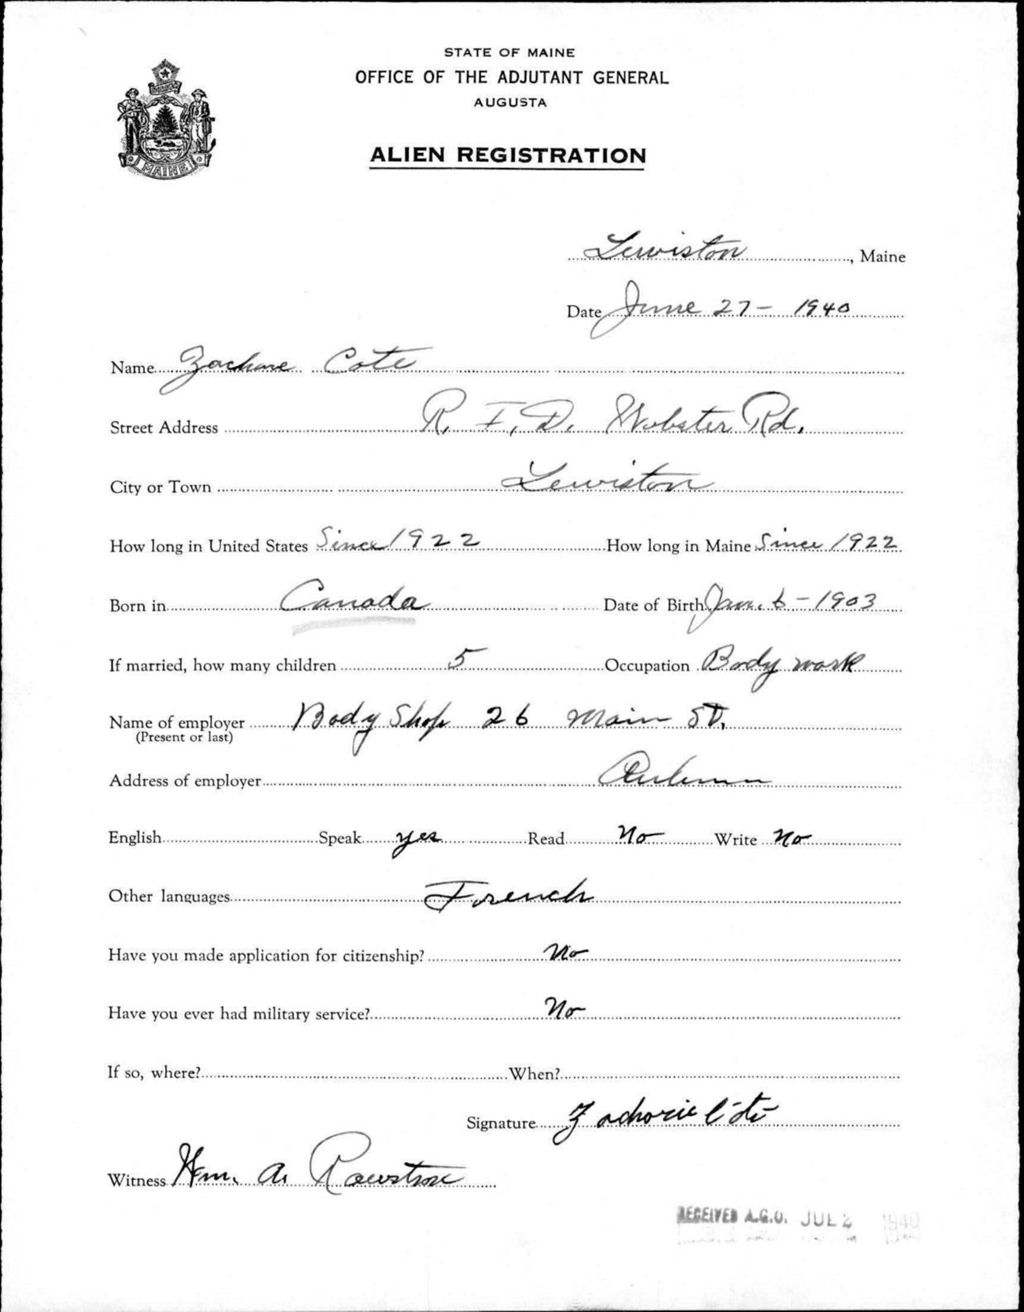 STATE OF MAINE
OFFICE OF THE ADJUTANT GENERAL
AUGUSTA
ALIEN REGISTRATION
MAINE
Lewiston, Maine
Date June 27 - 1940
Name Cote
Street Address R. F. D. Webster Rd.
City or Town Lewiston
How long in United States Since 1922 How long in Maine Since 1922
Born in Canada Date of Birth Jan. 6 - 1903
If married, how many children 5 Occupation Body work
Name of employer Body Shop 26 Main St.
(Present or last)
Address of employer Auburn
English Speak yes Read No Write No
Other languages French
Have you made application for citizenship? No
Have you ever had military service? No
If so, where? When?
Signature Zachorie Côté
Witness Wm. A.
RECEIVED A.G.O. JUL 2 1940